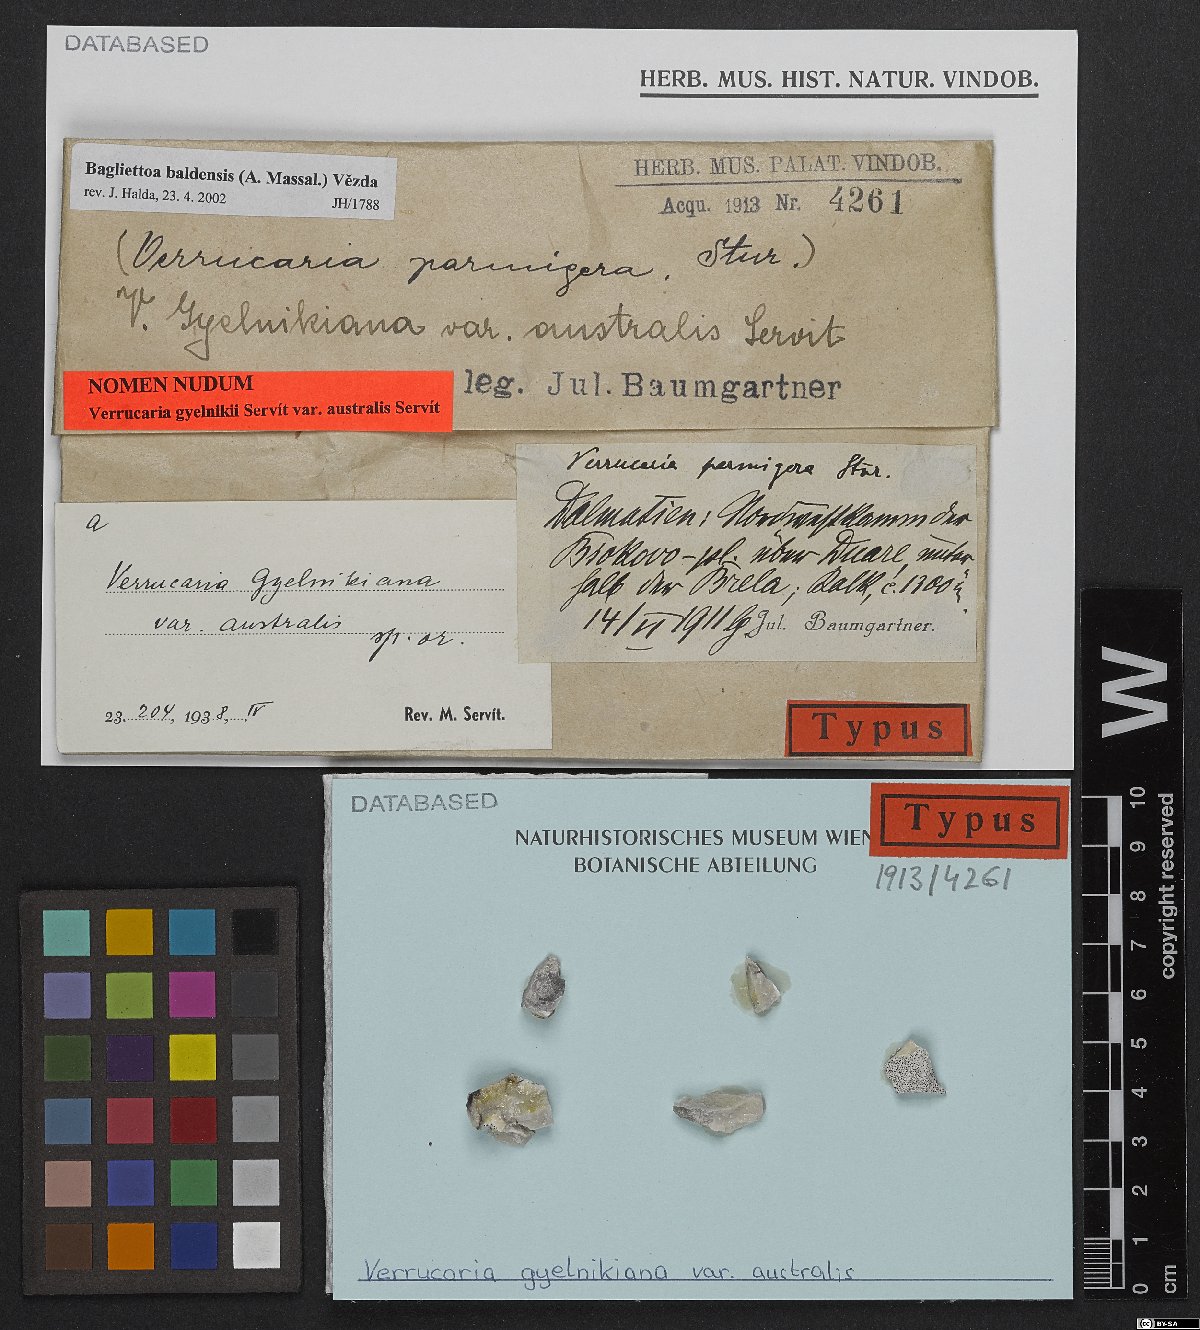 DATABASED
HERB. MUS. HIST. NATUR. VINDOB.
Bagliettoa baldensis (A. Massal.) Vězda
rev. J. Halda, 23. 4. 2002 JH/1788
HERB. MUS. PALAT. VINDOB.
Acqu. 1913 Nr. 4261
(Verrucaria parmigera, Stnr.)
V. Gyelnikiana var. australis Servit
NOMEN NUDUM
Verrucaria gyelnikii Servít var. australis Servít
leg. Jul. Baumgartner
Verrucaria parmigera Stnr.
Dalmatien: Nordwestkamm der
Biokovo-pl. über Duare, unter
halb der Brela; Kalk, c. 1300
14/VI 1911 lg Jul. Baumgartner.
a
Verrucaria Gyelnikiana
var. australis
sp. or.
23. 204, 1938, IV
Rev. M. Servít.
Typus
DATABASED
Typus
NATURHISTORISCHES MUSEUM WIEN
BOTANISCHE ABTEILUNG
1913/4261
Verrucaria gyelnikiana var. australis
W
10
9
8
7
6
5
4
3
2
1
0
cm
copyright reserved
cc BY-SA